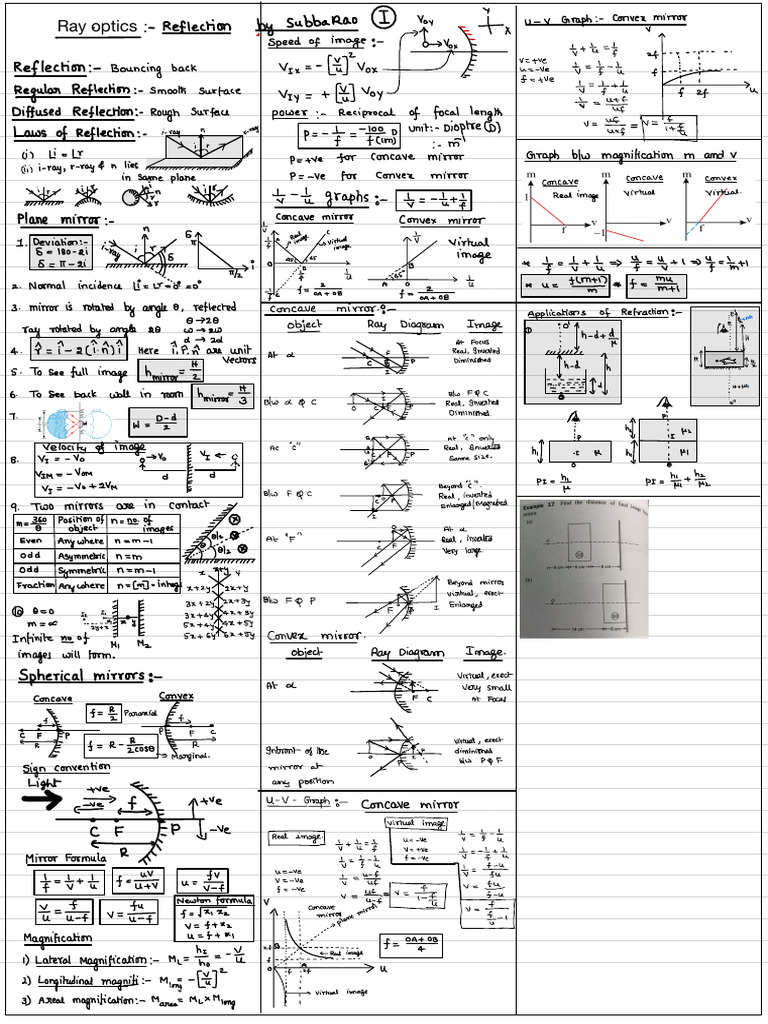 Ray optics :- Reflection
by SubbaRao I
Reflection:- Bouncing back
Regular Reflection:- Smooth Surface
Diffused Reflection:- Rough Surface
Laws of Reflection:-
(i) Li = Lr
(ii) i-ray, r-ray & n lies
in same plane
i-ray n r-ray
Plane mirror:-
1. Deviation:-
δ = 180-2i
δ = π-2i
i-ray n r δ π π/2 i
2. Normal incidence Li = Lr = 0° = 0°
3. mirror is rotated by angle θ, reflected
ray rotated by angle 2θ
θ → 2θ
ω → 2ω
d → 2d
4. r̂ = î - 2(î·n̂)î Here î, r̂, n̂ are unit vectors
5. To see full image h mirror = H/2
6. To see back wall in room h mirror = H/3
7. W = D-d/2
8. Velocity of image
V_I = -V_O
V_IM = -V_OM
V_I = -V_O + 2V_M
9. Two mirrors are in contact
m = 360/θ Position of object n = no. of images
Even Any where n = m-1
Odd Asymmetric n = m
Odd Symmetric n = m-1
Fraction Anywhere n = [m] = integ
x y
x+2y 2x+y
3x+2y 2x+3y
3x+4y 4x+3y
5x+4y 4x+5y
5x+6y 6x+5y
10 θ = 0
m = ∞
M1 M2
Infinite no of
images will form.
Spherical mirrors:-
Concave Convex
f = R/2 Paraxial
f = R - R/2cosθ
Marginal.
C F P R
P F C R
Sign convention
Light
+ve -ve f +ve
C F P -ve
R
Mirror Formula
1/f = 1/v + 1/u f = uv/u+v u = fv/v-f
v/u = f/u-f v = fu/u-f
Newton formula
f = √x1 x2
v = f + x2
u = f + x1
Magnification
1) Lateral Magnification:- M_L = h_I/h_o = -v/u
2) Longitudinal magnifi:- M_long = -[v/u]²
3) Areal magnification:- M_area = M_L x M_long
Speed of image:-
V_Ix = -[v/u]² V_Ox
V_Iy = +[v/u] V_Oy
V_Oy V_Ox Y X
power:- Reciprocal of focal length
P = -1/f = -100/f(cm) D unit:- Dioptre (D)
:- m⁻¹
P = +ve for Concave mirror
P = -ve for Convex mirror
1/v - 1/u graphs:- 1/v = -1/u + 1/f
Concave mirror Convex mirror
Real image Virtual image
Virtual image
f = 2/OA+OB f = 2/OA+OB
Concave mirror:-
Object Ray Diagram Image
At α At Focus
Real, Inverted
Diminished
B/w α & C B/w F & C
Real, Inverted
Diminished
At "C" At "C" only
Real, Inverted
Same size.
B/w F & C Beyond "C"
Real, inverted
Enlarged/magnified
At "F" At α
Real, invated
Very large
B/w F & P Beyond mirror
Virtual, erect
Enlarged
Convex mirror.
Object Ray Diagram Image.
At α Virtual, erect
Very small
At Focal
Infront of the
mirror at
any position
Virtual, erect
diminished
b/w P & F
U-V - Graph:- Concave mirror
Real image.
u = -ve
v = -ve
f = -ve
1/v + 1/u = 1/f
1/v = 1/f - 1/u
1/v = u-f/uf
v = uf/u-f = v = f/1-f/u
virtual image
u = -ve
v = +ve
f = -ve
1/v = 1/f - 1/u
1/v = -1/f + 1/u
1/v = f-u/fu
v = fu/f-u
v = f/f/u-1
Concave mirror
plane mirror
Real image
Virtual image
f = OA+OB/4
U-V Graph:- Convex mirror
v = +ve
u = -ve
f = +ve
1/v + 1/u = 1/f
1/v = 1/f - 1/u
1/v = 1/f + 1/u
1/v = u+f/uf
v = uf/u+f = v = f/1+f/u
V 2f f f 2f u
Graph b/w magnification m and v
m Concave m Concave m Convex
Real image Virtual Virtual.
1 f v -1 v f v
* 1/f = 1/v + 1/u ⇒ u/f = u/v + 1 ⇒ u/f = 1/m + 1
* u = f(m+1)/m * f = mu/m+1
Applications of Refraction:-
h-d+d/μ
h-d
h d
PI = h1/μ PI = h1/μ1 + h2/μ2
Example 17 Find the distance of final image
(a)
(b)